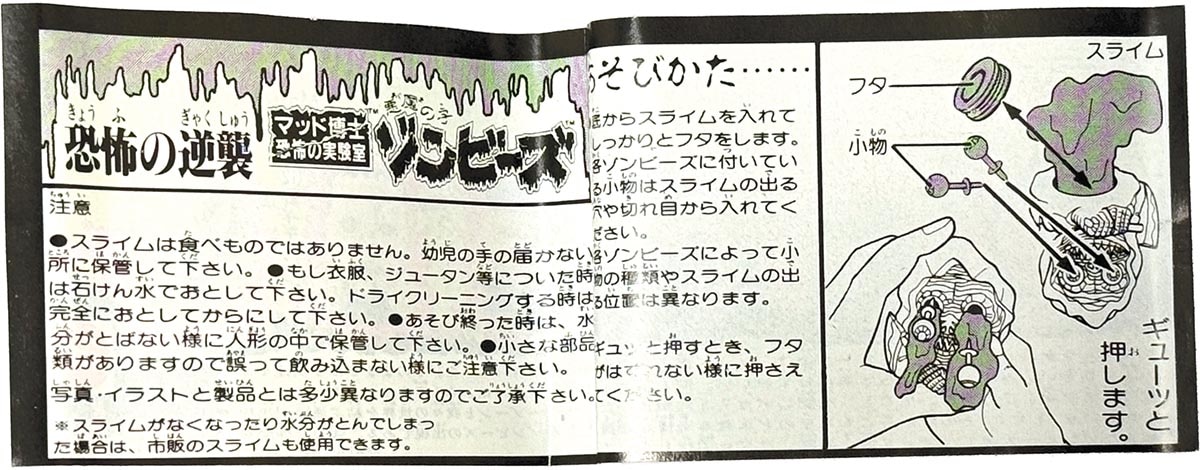 恐怖の逆襲
マッド博士
恐怖の実験室
悪魔の字
ゾンビーズ
注意
●スライムは食べものではありません。幼児の手の届かない
所に保管して下さい。●もし衣服、ジュータン等についた時
は石けん水でおとして下さい。ドライクリーニングする時は
完全におとしてからにして下さい。●あそび終った時は、水
分がとばない様に人形の中で保管して下さい。●小さな部品
類がありますので誤って飲み込まない様にご注意下さい。
写真・イラストと製品とは多少異なりますのでご了承下さい。
※スライムがなくなったり水分がとんでしまっ
た場合は、市販のスライムも使用できます。
あそびかた……
底からスライムを入れて
しっかりとフタをします。
各ゾンビーズに付いてい
る小物はスライムの出る
穴や切れ目から入れてく
ださい。
各ゾンビーズによって小
物の種類やスライムの出
る位置は異なります。
ギュッと押すとき、フタ
がはずれない様に押さえ
てください。
スライム
フタ
小物
ギューッと
押します。